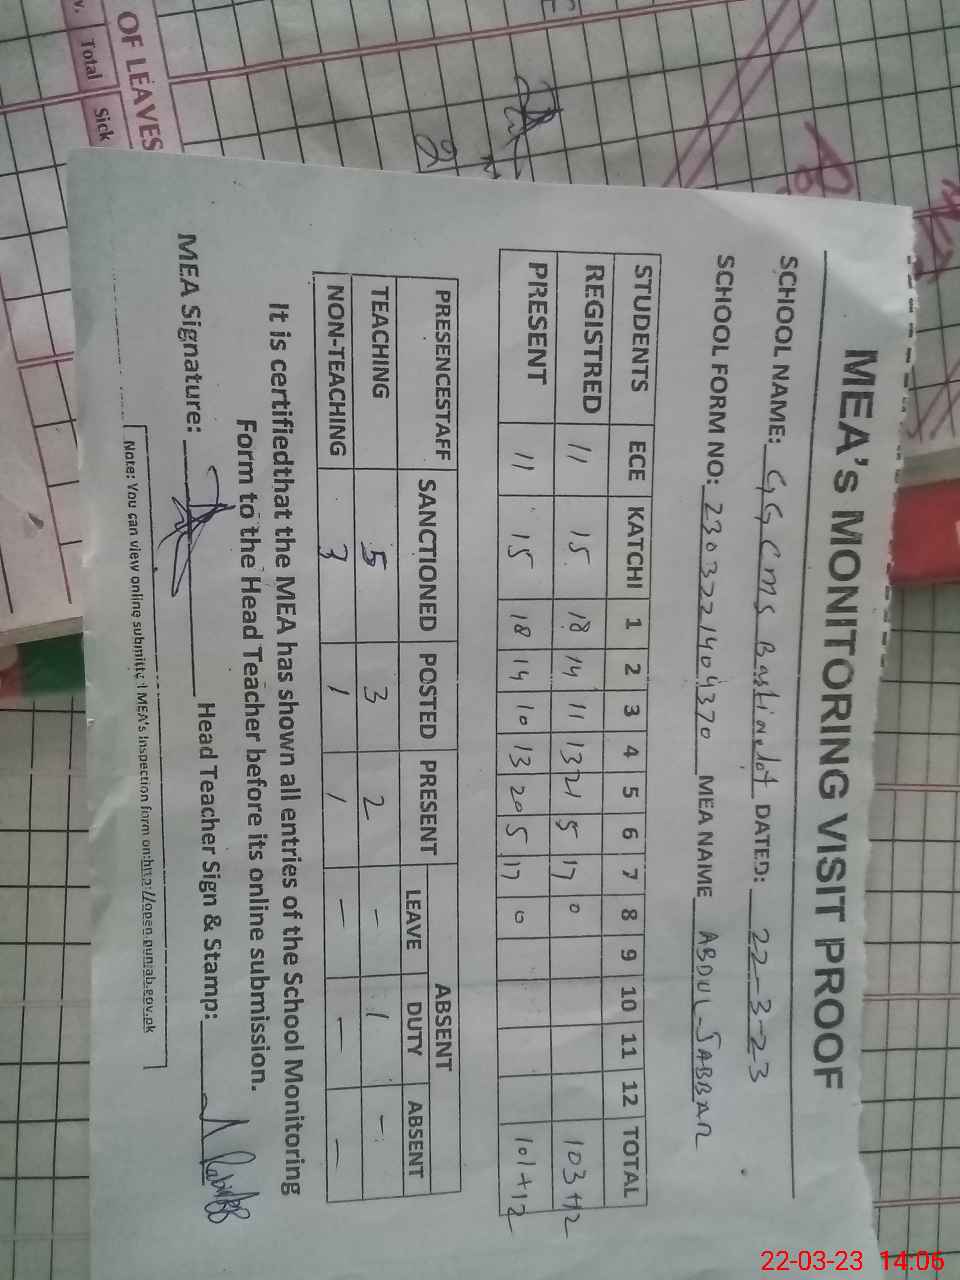 OF LEAVES
Total Sick
MEA's MONITORING VISIT PROOF
SCHOOL NAME: GGCMS DATED: 22-3-23
SCHOOL FORM NO: 2303221404370 MEA NAME ABDUL-JABBAR
STUDENTS ECE KATCHI 1 2 3 4 5 6 7 8 9 10 11 12 TOTAL
REGISTRED 11 15 18 14 11 13 21 5 17 0 103+12
PRESENT 11 15 18 14 10 13 20 5 17 0 101+12
PRESENCESTAFF SANCTIONED POSTED PRESENT ABSENT
LEAVE DUTY ABSENT
TEACHING 5 3 2 - 1 -
NON-TEACHING 3 1 1 - - -
It is certifiedthat the MEA has shown all entries of the School Monitoring
Form to the Head Teacher before its online submission.
MEA Signature: Head Teacher Sign & Stamp:
Note: You can view online submitted MEA's Inspection form on:http://open.punjab.gov.pk
22-03-23 14:05